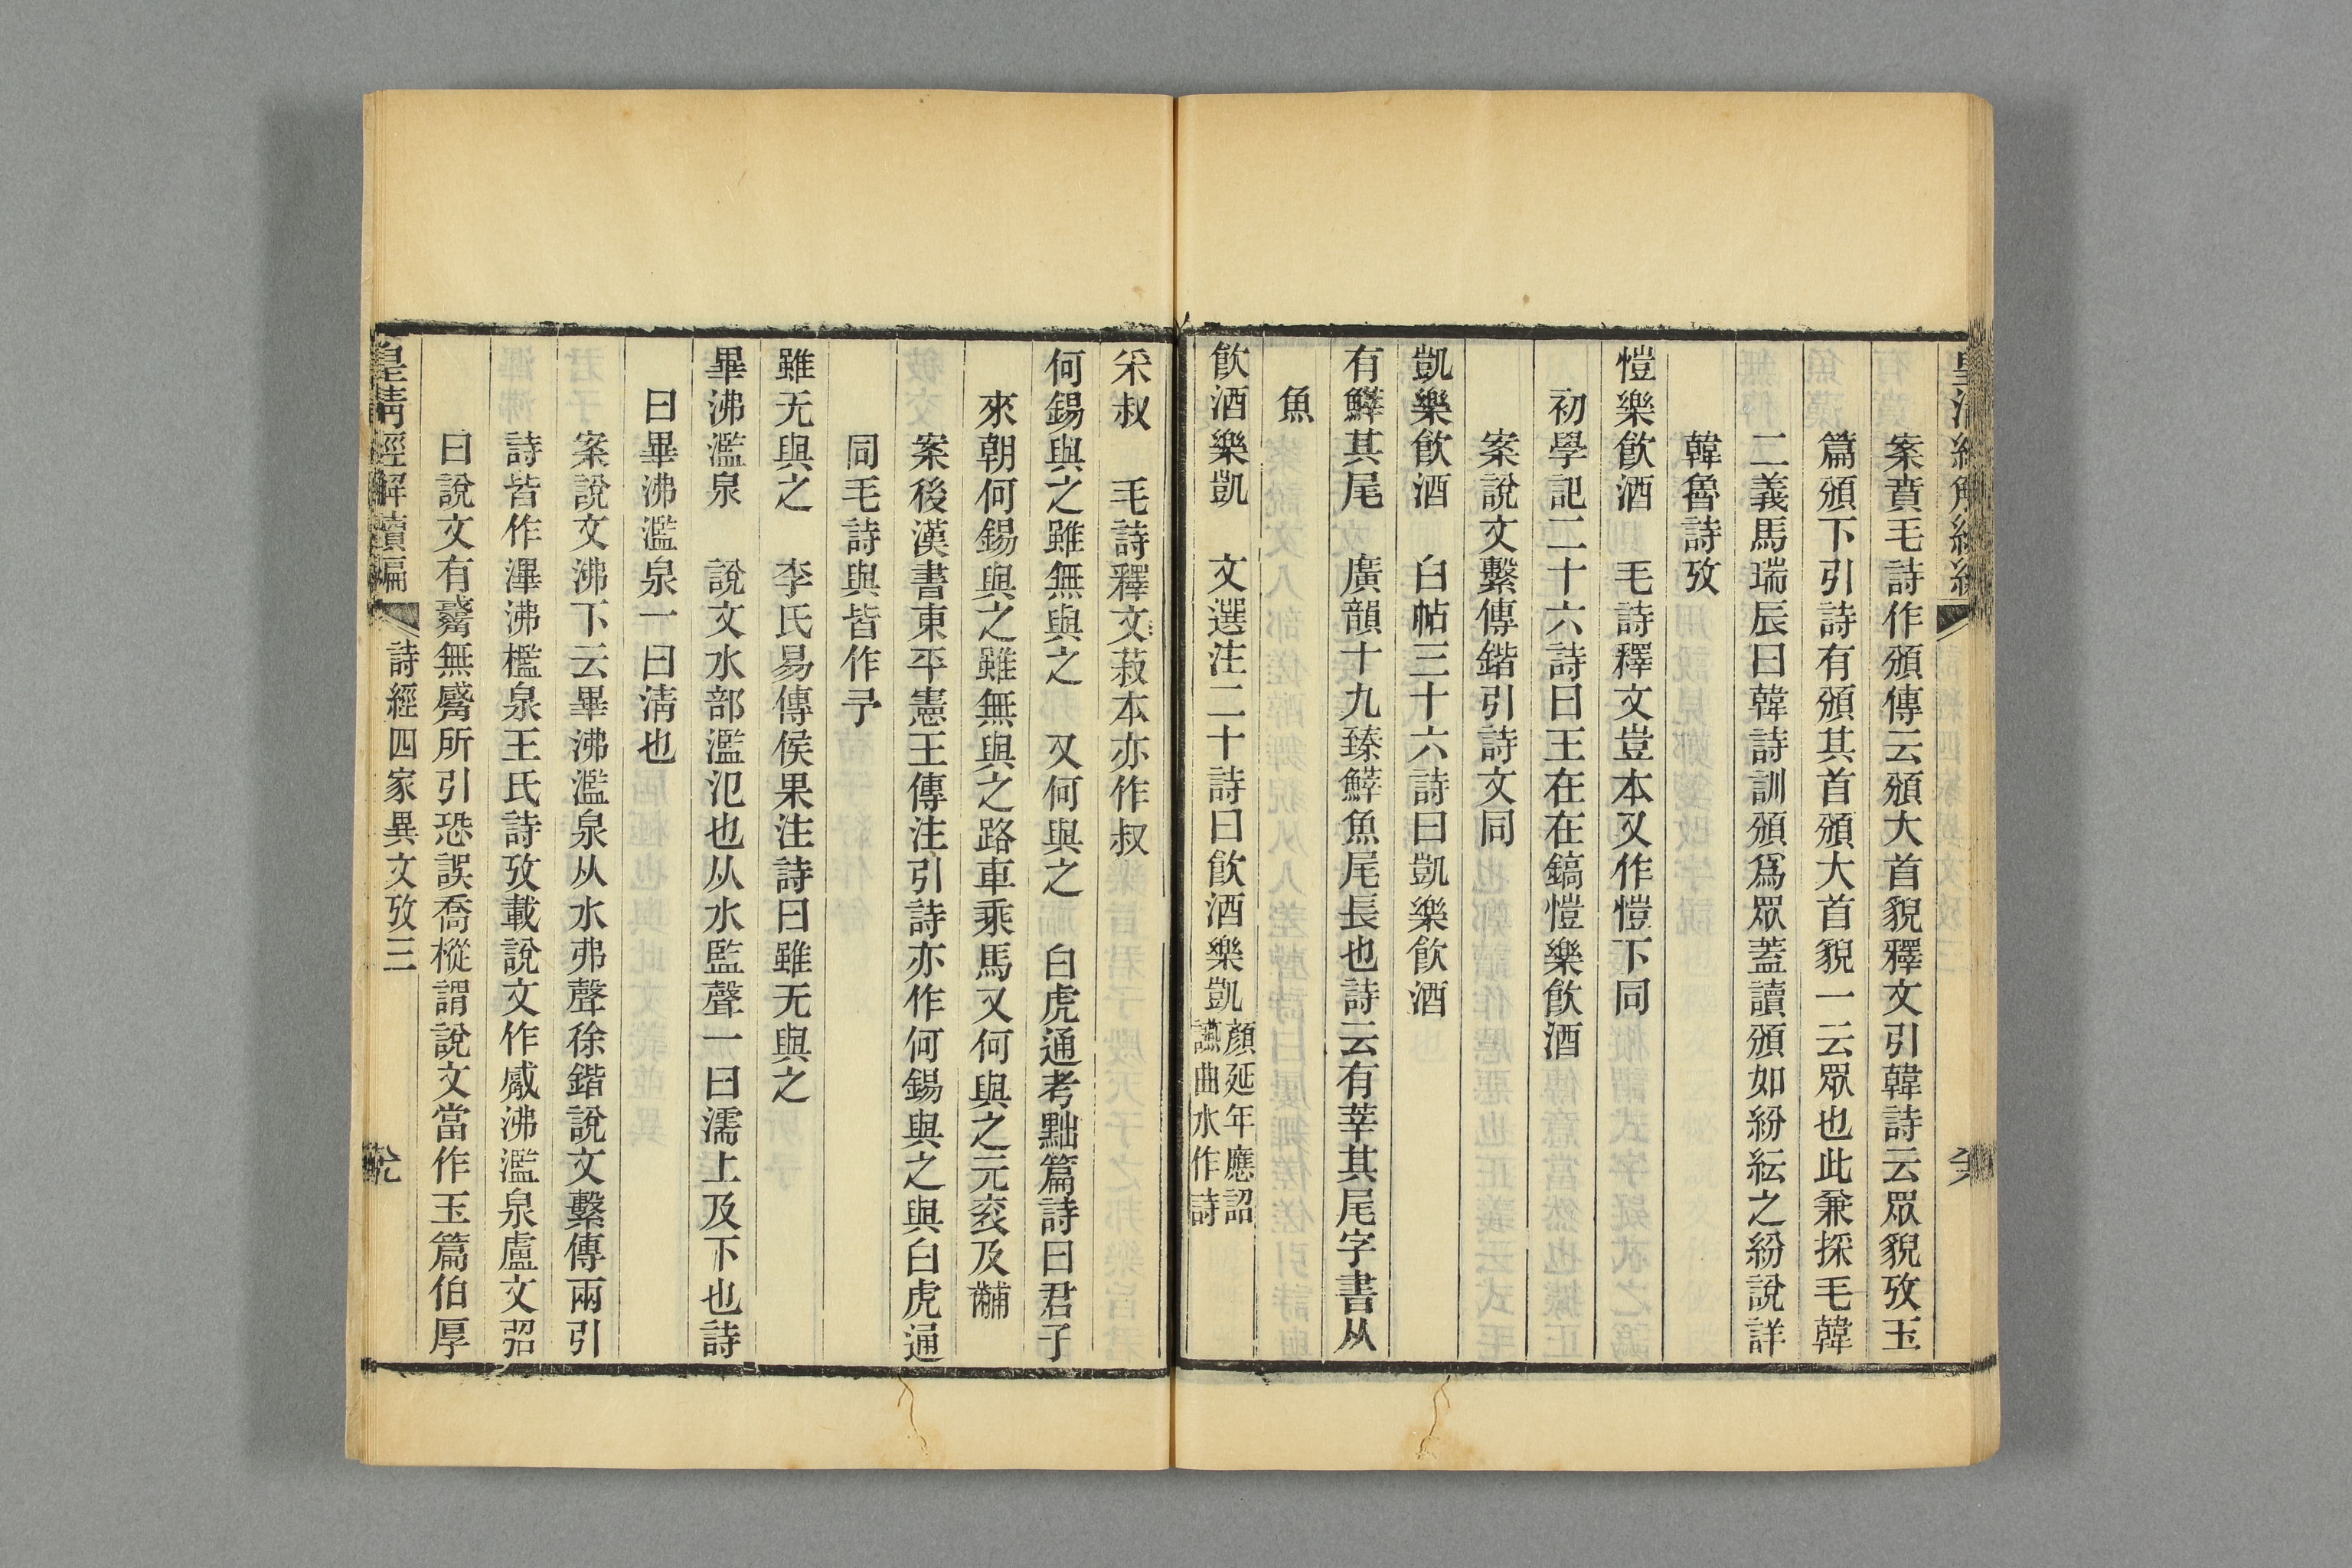 案賁毛詩作頒傳云頒大首貌釋文引韓詩云眾貌攷玉
篇頒下引詩有頒其首頒大首貌一云眾也此兼採毛韓
二義馬瑞辰曰韓詩訓頒爲眾蓋讀頒如紛紜之紛說詳
韓魯詩攷
愷樂飲酒　毛詩釋文豈本又作愷下同
初學記二十六詩曰王在在鎬愷樂飲酒
案說文繫傳鍇引詩文同
凱樂飲酒　白帖三十六詩曰凱樂飲酒
有鱓其尾　廣韻十九臻鱓魚尾長也詩云有莘其尾字書从
魚
飲酒樂凱　文選注二十詩曰飲酒樂凱顏延年應詔
讌曲水作詩
采叔　毛詩釋文菽本亦作叔
何錫與之雖無與之　又何與之　白虎通考黜篇詩曰君子
來朝何錫與之雖無與之路車乘馬又何與之元袞及黼
案後漢書東平憲王傳注引詩亦作何錫與之與白虎通
同毛詩與皆作予
雖无與之　李氏易傳侯果注詩曰雖无與之
畢沸濫泉　說文水部濫氾也从水監聲一曰濡上及下也詩
曰畢沸濫泉一曰淸也
案說文沸下云畢沸濫泉从水弗聲徐鍇說文繫傳兩引
詩皆作滭沸檻泉王氏詩攷載說文作觱沸濫泉盧文弨
曰說文有無觱所引恐誤喬樅謂說文當作玉篇伯厚
皇清經解續編
詩經四家異文攷三